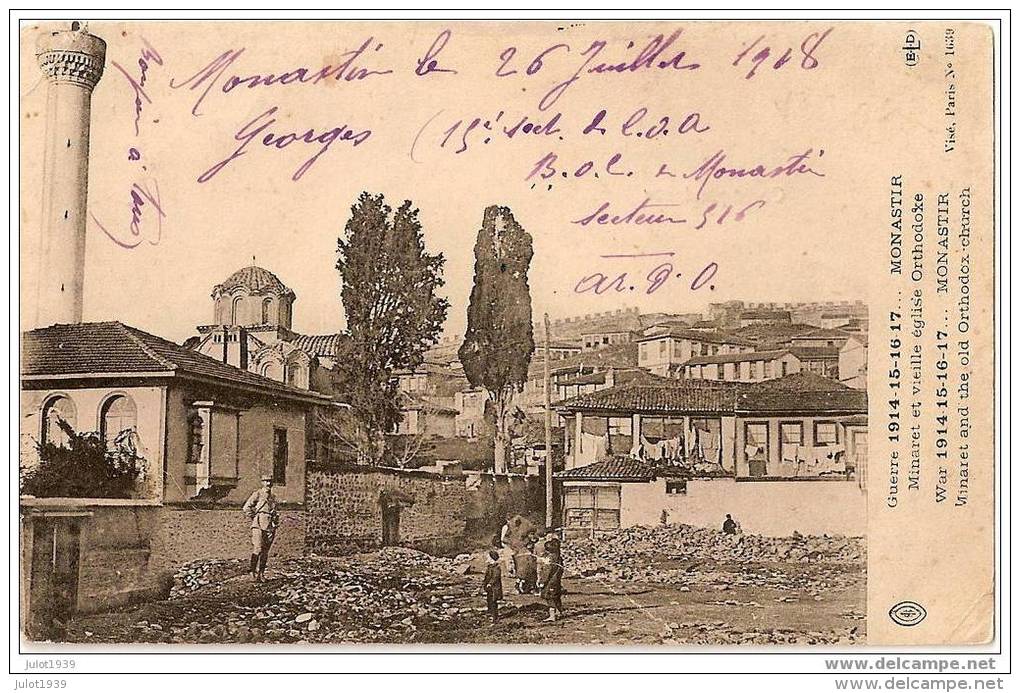 Monastir le 26 Juillet 1918
Georges (15e sect. de C.O.A
B.O.C. de Monastir
Secteur 516
A.O.
Bonjour à Tous
Guerre 1914-15-16-17... MONASTIR
Minaret et vieille église Orthodoxe
War 1914-15-16-17... MONASTIR
Minaret and the old Orthodox church
(ELD)
Visé, Paris No 1639
julot1939
julot1939
www.delcampe.net
www.delcampe.net